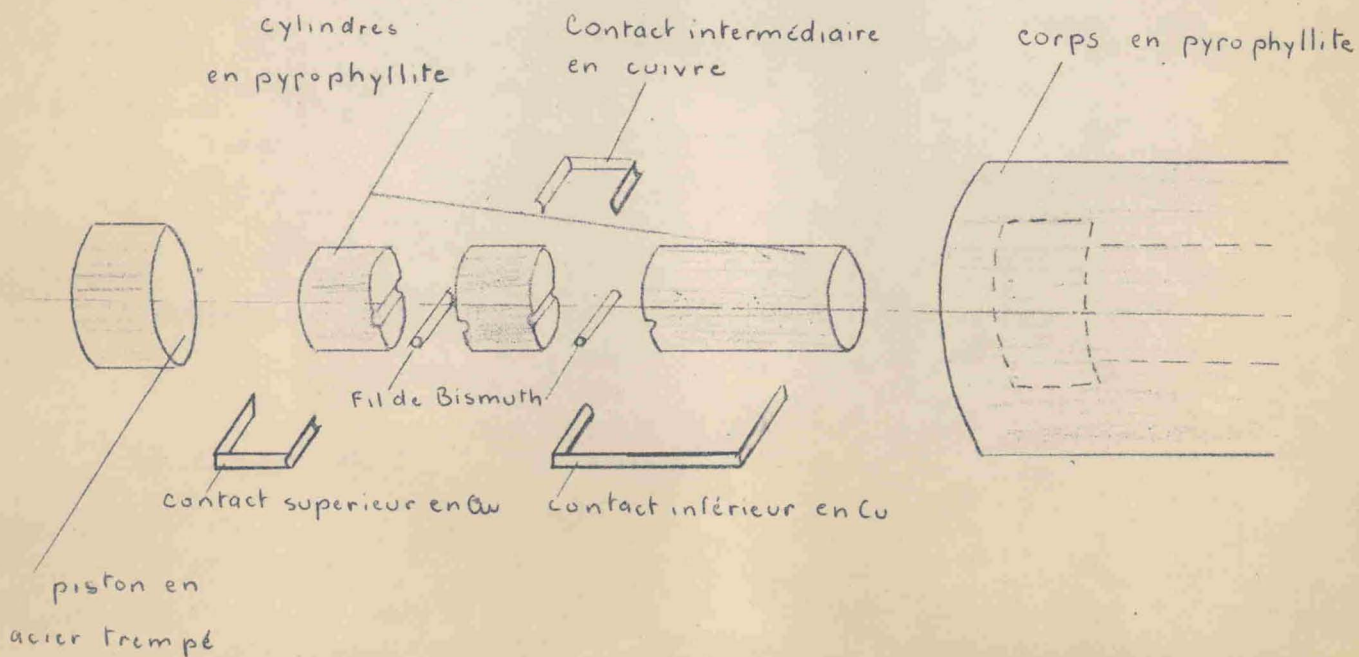 cylindres
en pyrophyllite
Contact intermédiaire
en cuivre
corps en pyrophyllite
Fil de Bismuth
contact superieur en Cu
contact inférieur en Cu
piston en
acier trempé